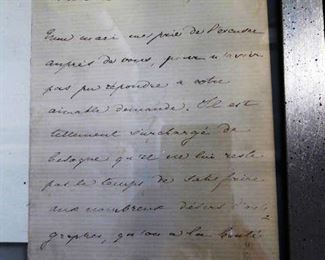 mon mari me prie de l'excuser
auprès de vous, pour n'avoir
pas pu répondre à votre
aimable demande. Il est
tellement surchargé de
besogne qu'il ne lui reste
pas le temps de satisfaire
aux nombreux désirs d'auto
graphes, qu'on a la bonté